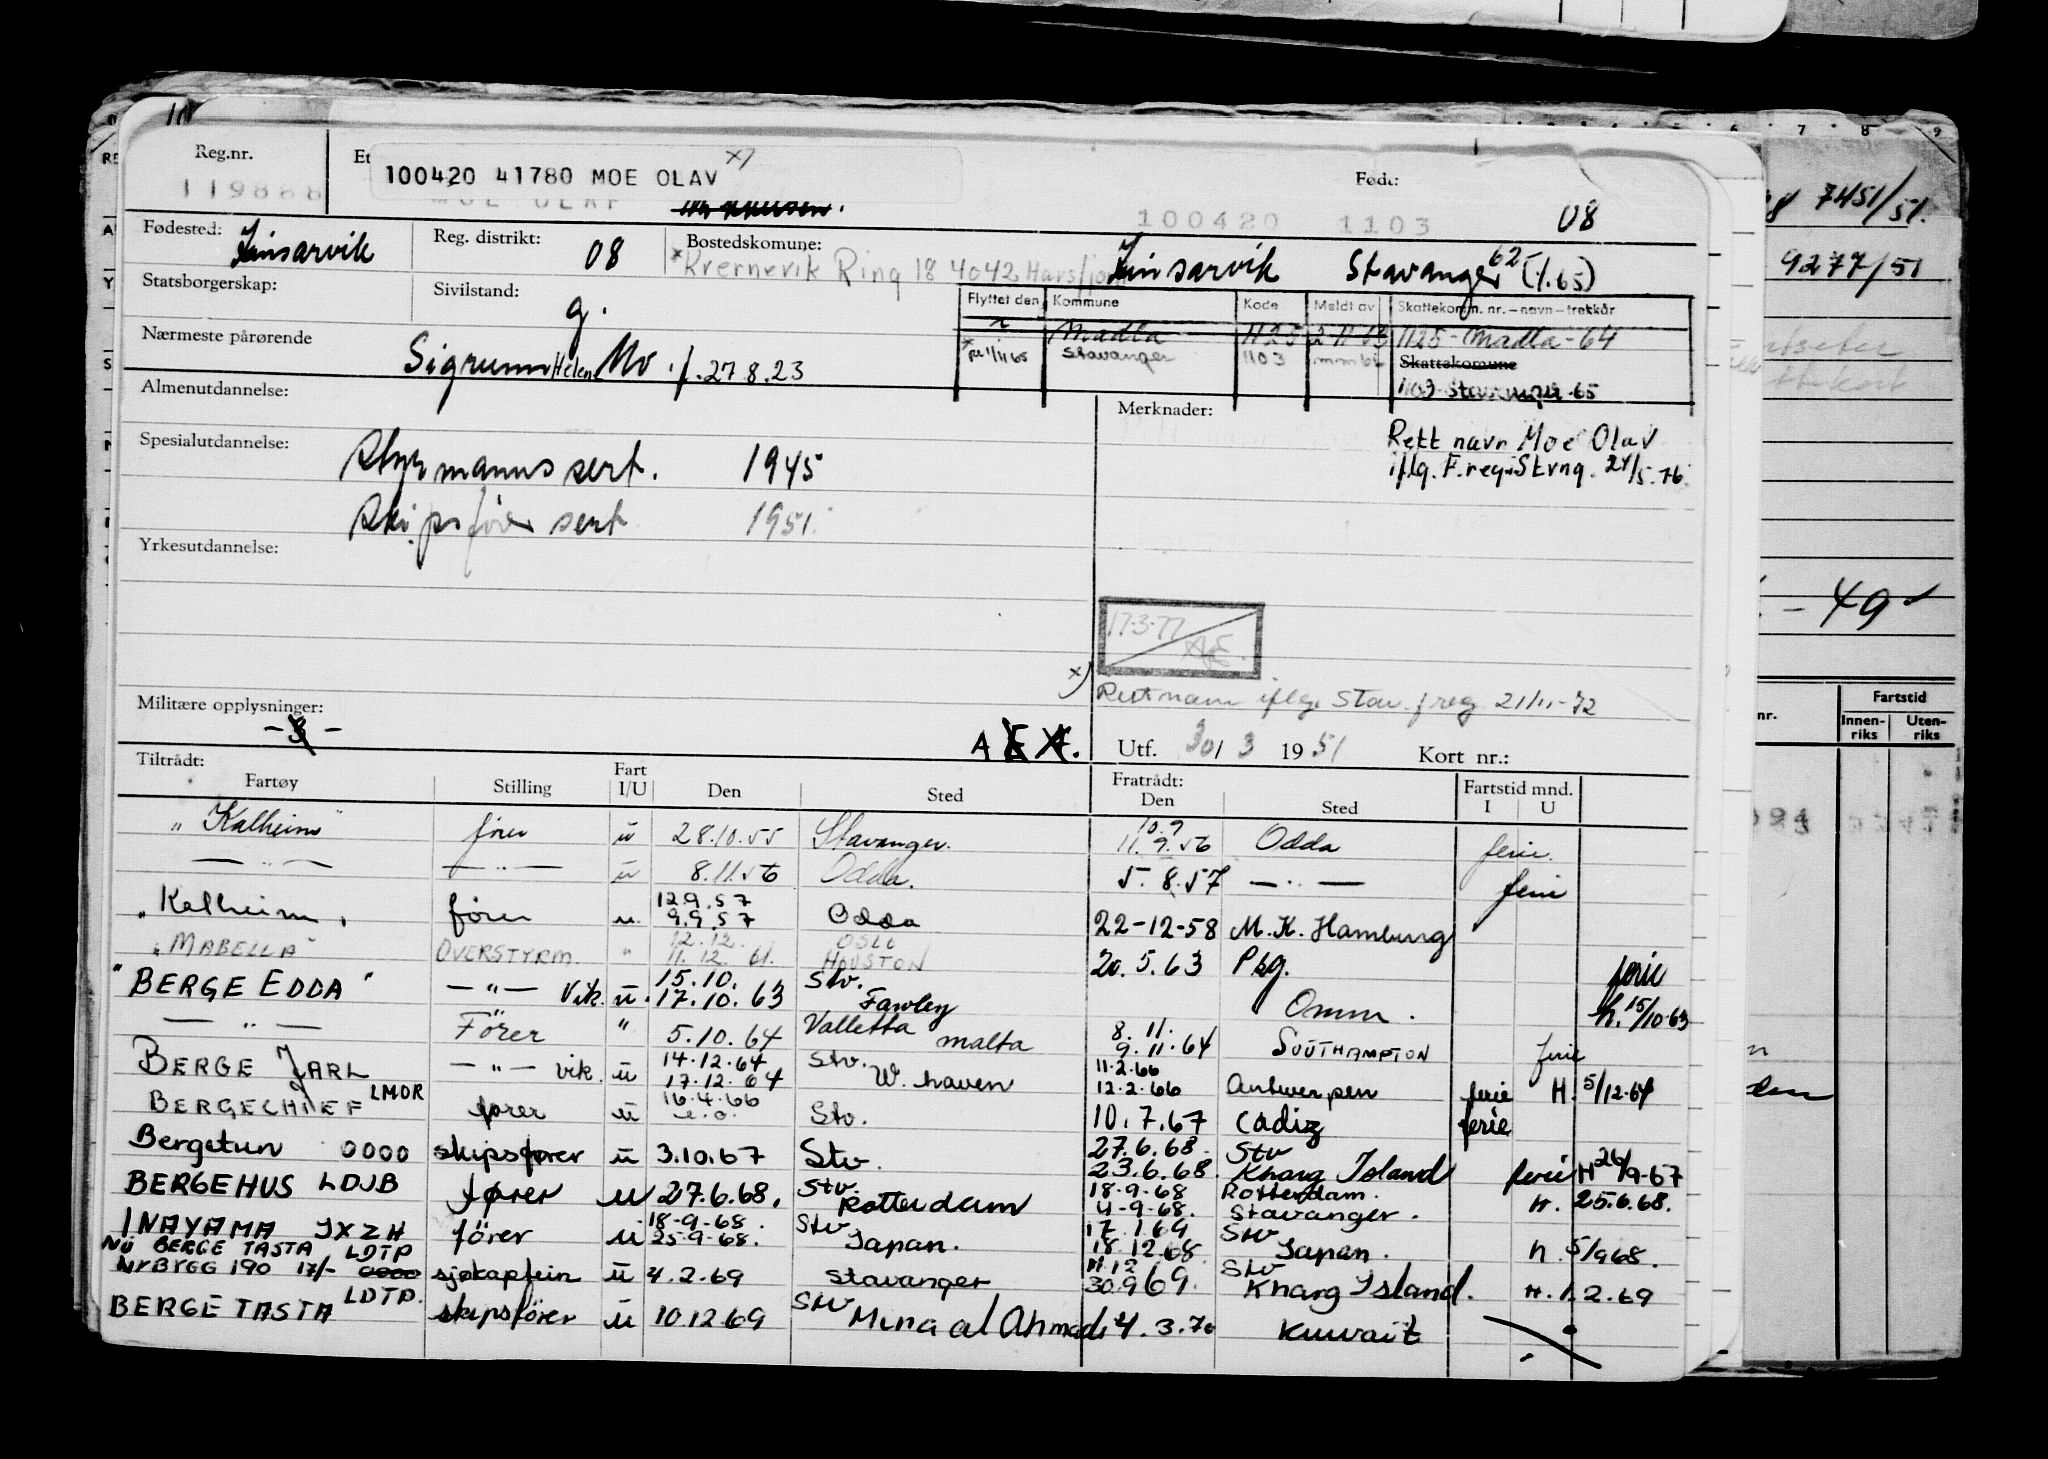 Reg.nr.
119888
100420 41780 MOE OLAV x)
Født:
100420 1103 08
Fødested: Kinsarvik
Reg. distrikt: 08
Bostedskomune: Kinsarvik Stavanger 625 (1.65)
* Kvernevik Ring 18 4042 Hafrsfjord
Statsborgerskap:
Sivilstand: g.
Flyttet den Kommune Kode Meldt av Skattekomm. nr. – navn – trekkår
Madla 1125 2 11 63 1125 - Madla - 64
Stavanger 1103 Skattekomune
1103 Stavanger 65
Nærmeste pårørende
Sigrunn Helen Mo f. 27.8.23
Almenutdannelse:
Merknader:
Rett navn Moe Olav
iflg. F.reg. Stvng. 24/5.76.
Spesialutdannelse:
Styrmanns sert. 1945
Skipsfører sert 1951
Yrkesutdannelse:
17-3-77
x) Rett navn iflge Stav. f reg 21/11-72
Militære opplysninger:
Utf. 30/3 1951 Kort nr.:
Tiltrådt: Fratrådt:
Fartøy Stilling Fart I/U Den Sted Den Sted Fartstid mnd. I U
„Kalheim" fører u 28.10.55 Stavanger. 10.9 11.9.56 Odda ferie.
— „ — — „ — u 8.11.56 Odda. 5.8.57 — „ — ferie
„Kalheim„ fører u. 12.9.57 9.9.57 Odda 22-12-58 M.K. Hamburg
„MABELLA" OVERSTYRM. " 12.12. 11.12.61. OSLO HOUSTON 20.5.63 Pbg. ferie
"BERGE EDDA" — „ — vik. u. 15.10. 17.10.63 Stv. Fawley Omm. h. 15/10-63
— „ — Fører " 5.10.64 Valletta malta 8.11. 9.11.64 SOUTHAMPTON ferie
BERGE JARL — „ — vik. u 14.12.64 17.12.64 Stv. W. haven 11.2.66 12.2.66 Antwerpen ferie H. 5/12.64
BERGECHIEF LMOR fører u 16.4.66 Stv. 10.7.67 Cadiz ferie
Bergetun 0000 skipsfører u 3.10.67 Stv. 27.6.68. 23.6.68. Stv Kharg Island ferie H 26/9-67
BERGEHUS LDJB fører u 27.6.68. Stv. Rotterdam 18-9-68 4-9-68. Rotterdam. Stavanger. H. 25.6.68.
INAYAMA JXZH fører u 18-9-68. 25-9-68. Stv Japan. 17.1.69 18.12.68 Stv Japan. h 5/9 68.
NÅ BERGE TASTA LDTP
NYBYGG 190 17/- 0000 sjøkaptein u 4.2.69 Stavanger 11.12 30.9.69. Stv Kharg Island. H. 1.2.69
BERGE TASTA LDTP. skipsfører u 10.12.69 Stv Mina al Ahmadi 4.3.70 Kuwait
7451/51.
9277/51
- 49
Fartstid
nr. Innen-riks Uten-riks